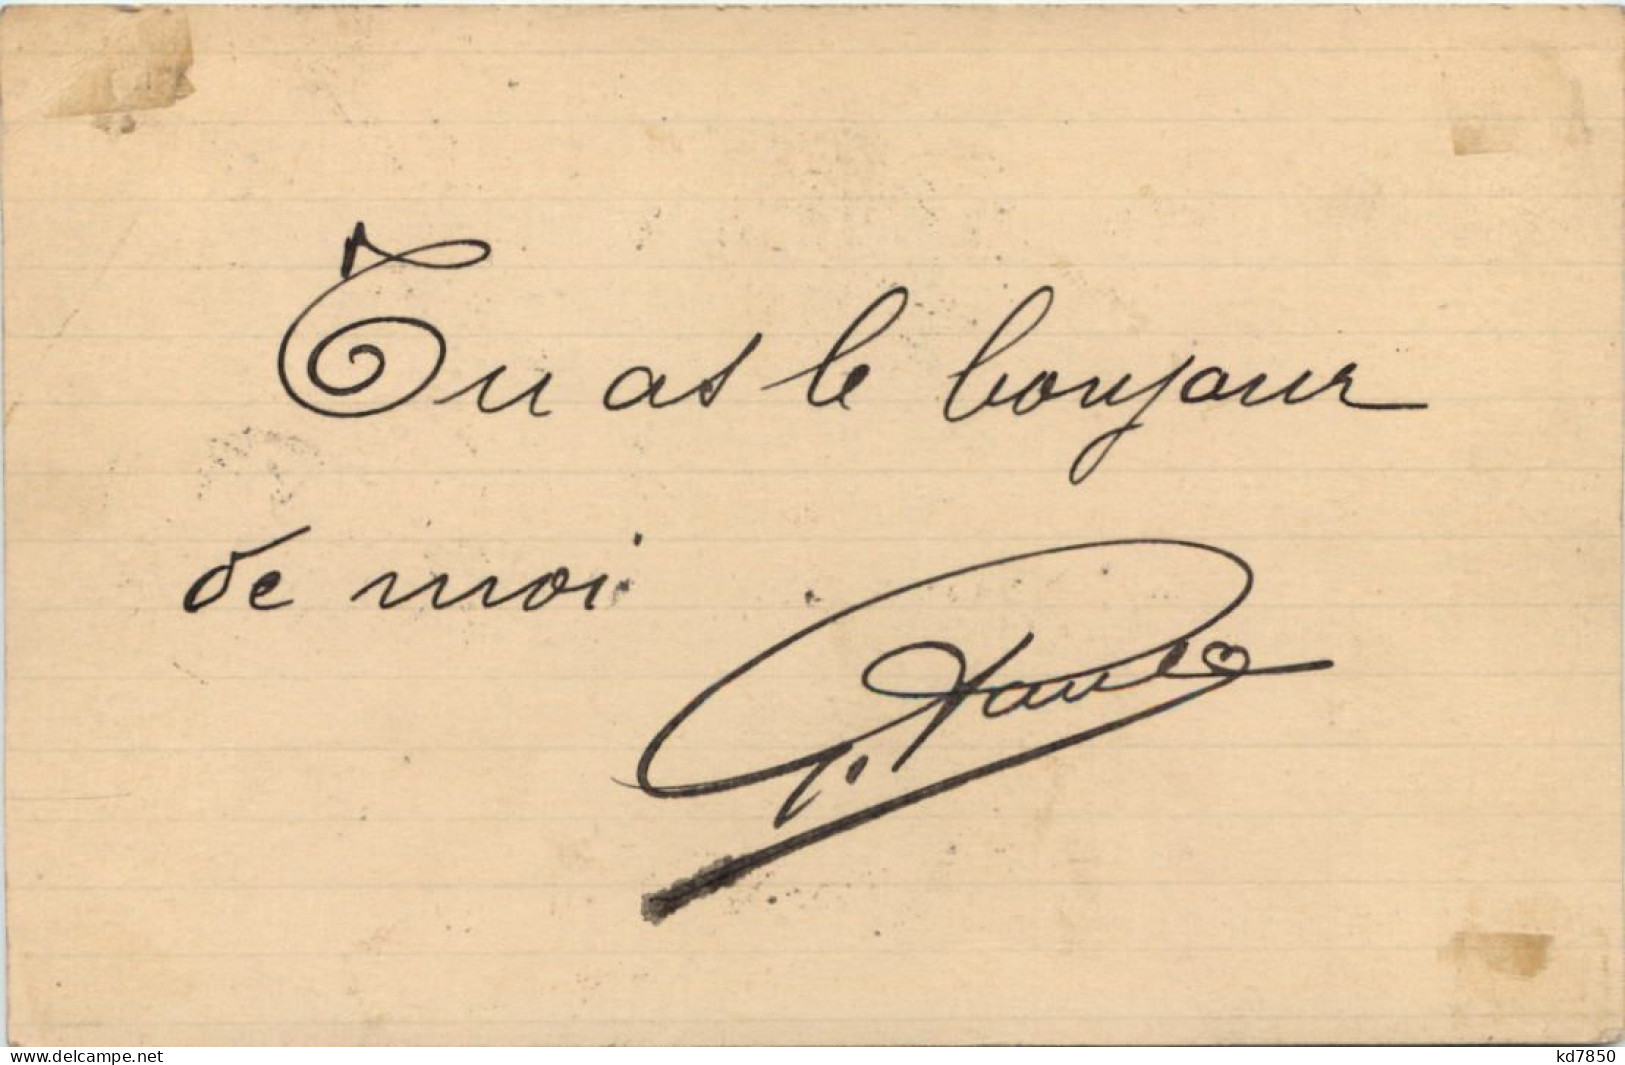 Tu as le bonjour
de moi
delcampe.net
kd7850